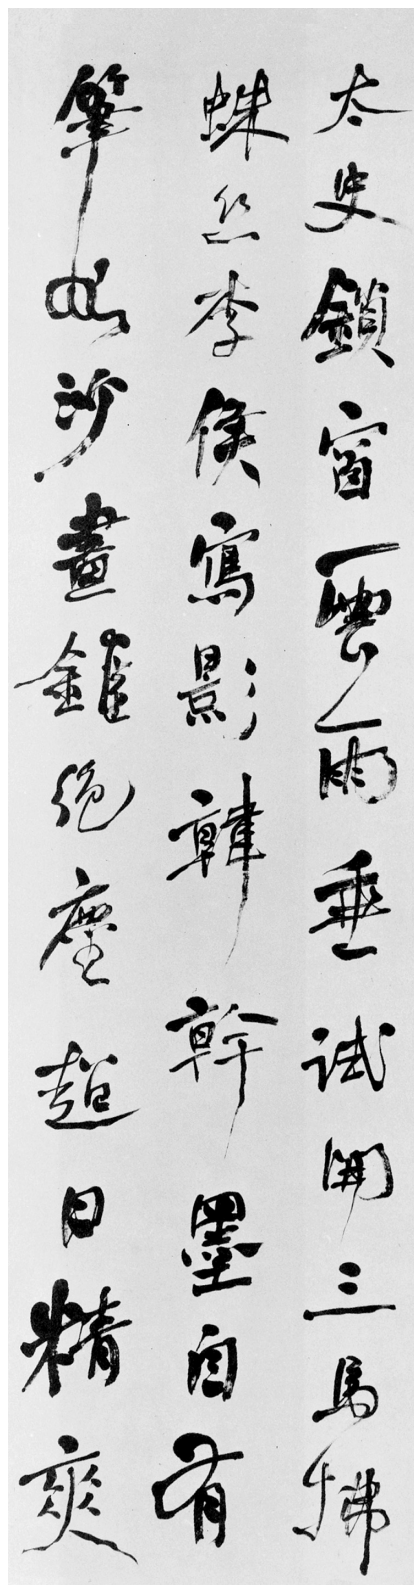 太史鎖窗雲雨垂試開三馬拂
蛛絲李侯寫影韓幹墨自有
筆如沙畫錐絕塵超日精爽